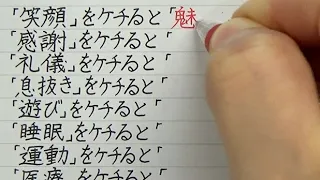 「笑顔」をケチると「魅
「感謝」をケチると「
「礼儀」をケチると「
「息抜き」をケチると「
「遊び」をケチると「
「睡眠」をケチると「
「運動」をケチると「
「医療」をケチると「